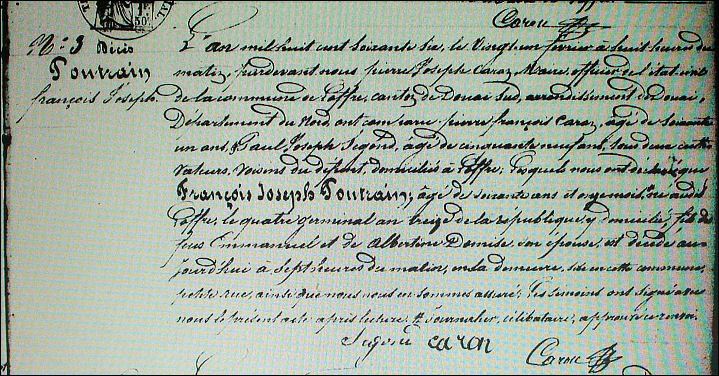 Caron
N° 3 Décès
Poutrain
françois Joseph
L'an mil huit cent Soixante Six, le Vingt un février à huit heures du
matin, pardevant nous pierre Joseph Caron, Maire, officier de l'état civil
de la commune de Loffre, canton de Douai Sud, arrondissement de Douai,
Département du Nord, ont comparu: pierre françois Caron, âgé de soixante
un ans, & Paul Joseph Ségond, âgé de cinquante neuf ans, tous deux culti
vateurs, voisins du défunt, domiciliés à Loffre; lesquels nous ont déclaré que
François Joseph Poutrain, âgé de soixante ans et onze mois, né audit
Loffre, le quatre germinal an treize de la republique, y domicilié, fils de
feus Emmanuel et de Albertine Demise son épouse, est décédé au
jourd'hui à Sept heures du matin, en sa demeure, sise en cette commune,
petite rue, ainsi que nous nous en sommes assuré; Les témoins ont signé avec
nous le présent acte après lecture. # Journalier, célibataire, approuvé ce renvoi.
Ségond caron
Caron